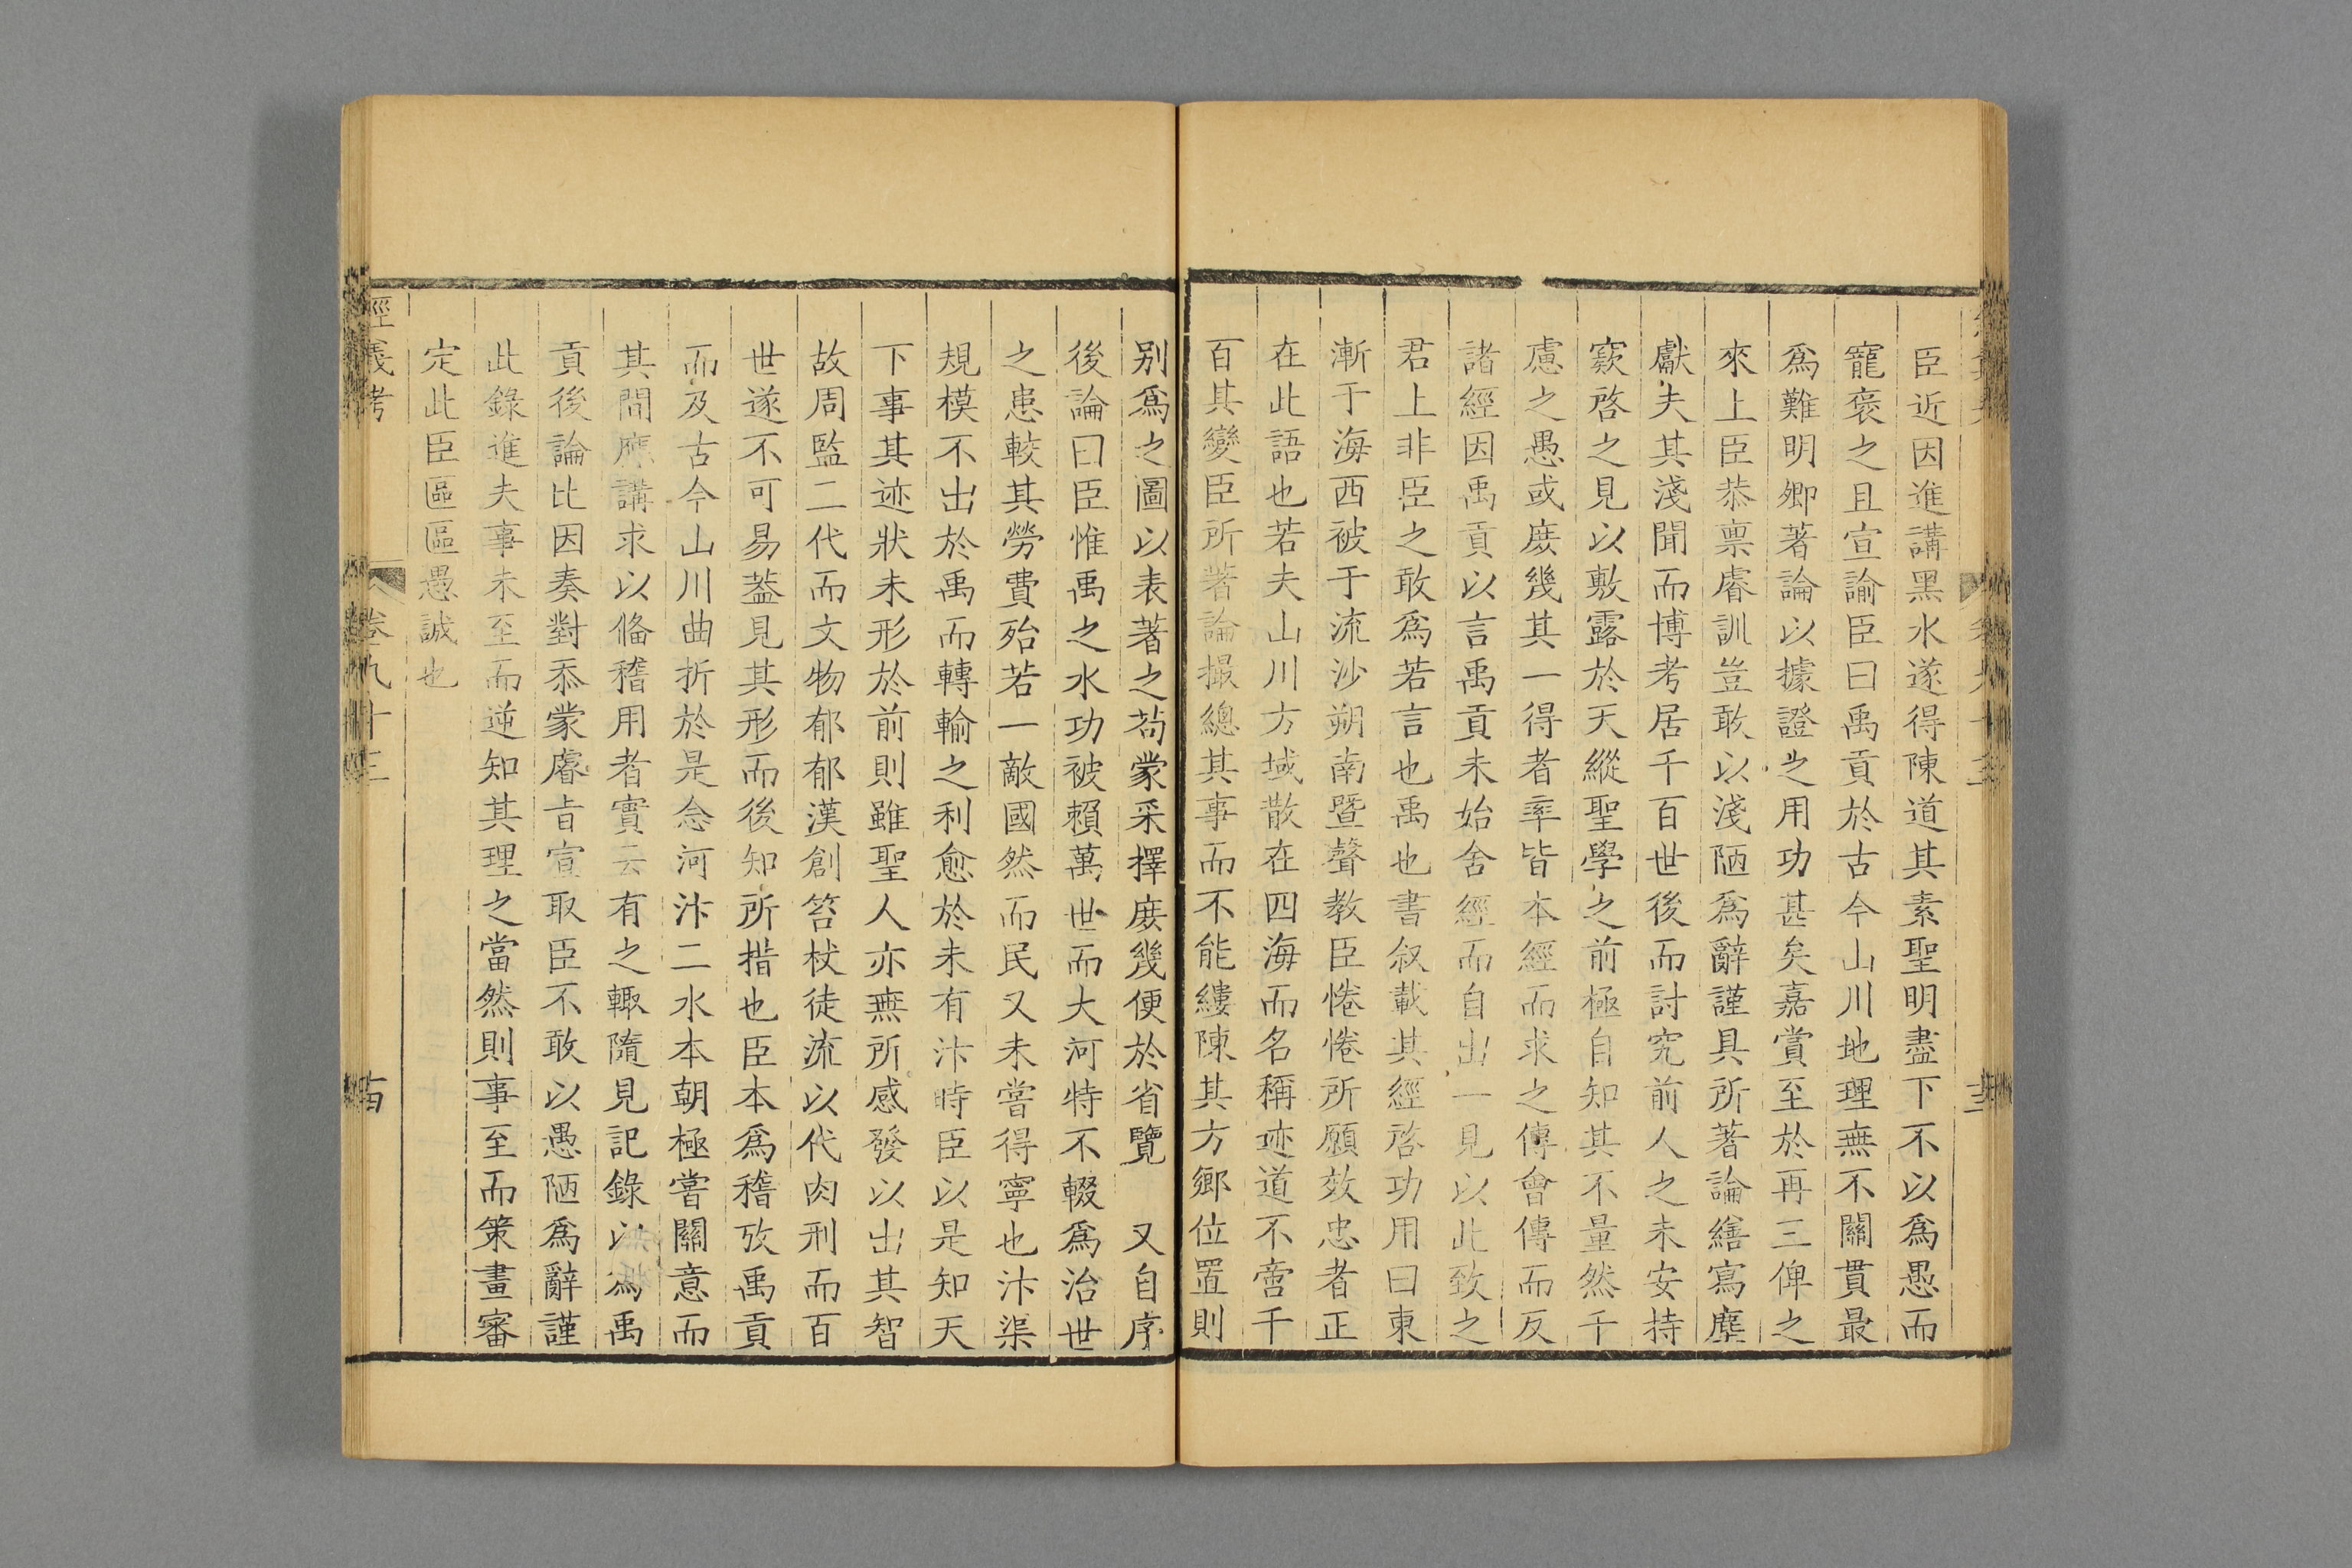 臣近因進講黑水遂得陳道其素聖明盡下不以爲愚而
寵褒之且宣諭臣曰禹貢於古今山川地理無不關貫最
爲難明卿著論以據證之用功甚矣嘉賞至於再三俾之
來上臣恭禀睿訓豈敢以淺陋爲辭謹具所著論繕寫塵
獻夫其淺聞而博考居千百世後而討究前人之未安持
窾啓之見以敷露於天縱聖學之前極自知其不量然千
慮之愚或庻幾其一得者率皆本經而求之傳會傳而反
諸經因禹貢以言禹貢未始舍經而自出一見以此致之
君上非臣之敢爲若言也禹也書叙載其經啓功用曰東
漸于海西被于流沙朔南暨聲教臣惓惓所願效忠者正
在此語也若夫山川方域散在四海而名稱迹道不啻千
百其變臣所著論撮總其事而不能縷陳其方鄉位置則
别爲之圖以表著之茍蒙采擇庻幾便於省覽 又自序
後論曰臣惟禹之水功被賴萬世而大河特不輟爲治世
之患較其勞費殆若一敵國然而民又未嘗得寧也汴渠
規模不出於禹而轉輸之利愈於未有汴時臣以是知天
下事其迹狀未形於前則雖聖人亦無所感發以出其智
故周監二代而文物郁郁漢創笞杖徒流以代肉刑而百
世遂不可易葢見其形而後知所措也臣本爲稽攷禹貢
而及古今山川曲折於是念河汴二水本朝極嘗關意而
其間應講求以俻稽用者實云有之輙隨見記錄以爲禹
貢後論比因奏對忝蒙睿旨宣取臣不敢以愚陋爲辭謹
此錄進夫事未至而逆知其理之當然則事至而策畫審
定此臣區區愚誠也
經義考 卷九十三